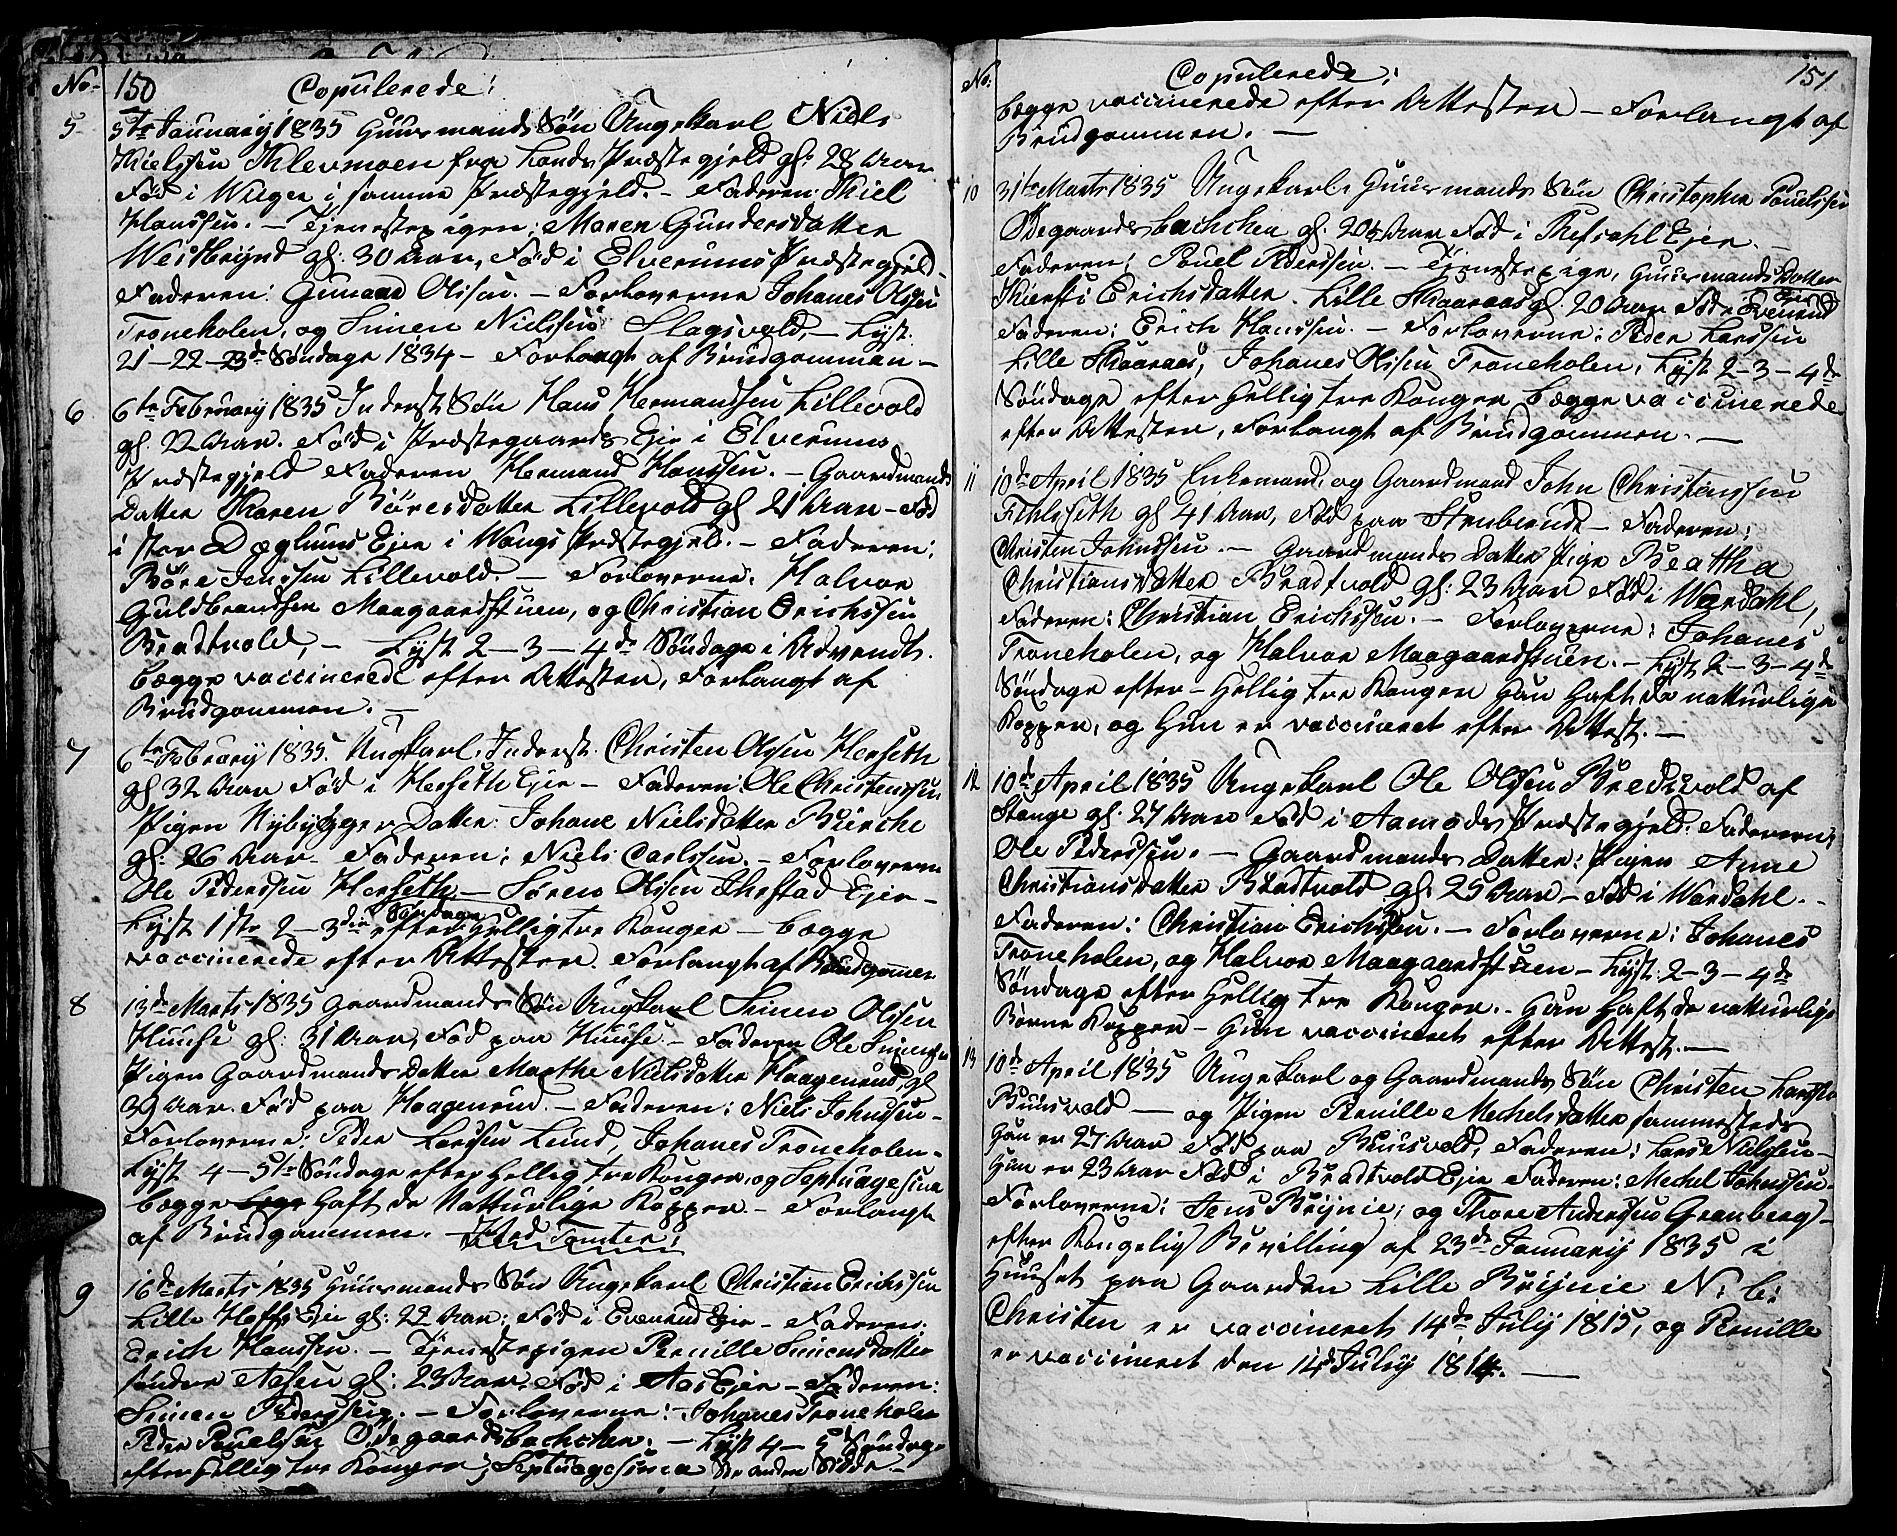 No. 150 Copulerede!
5 5te January 1835 Huusmands Søn Ungekarl Niels
Kielssen Klevmoen fra Lands Præstegjeld gl: 28 Aar
Fød i samme Præstegjeld. – Faderen: Kiel
Hanssen. – Tjenestepigen: Maren Gundersdatter
Westbrynd gl: 30 Aar, Fød i Elverums Præstegjeld –
Faderen: Olsen. – Forloverne Johanes Olsen
Troneholen, og Simen Nielssen Slagsvold, – Lyst.
21 – 22 – 23de Søndage 1834 – Forlangt af Brudgommen –
6 6te February 1835 Inderst Søn Hans Hermandsen Lillevold
gl. 22 Aar. Fød i Præstegaards Eje i Elverums
Præstegjeld Faderen Hermand Hanssen. – Gaardmands
Datter Karen Børesdatter Lillevold gl 21 Aar – Fød
i stor Døglums Eje i Wangs Præstegjeld. – Faderen:
Børe Jenssen Lillevold. – Forloverne: Halvor
Guldbrandsen Maagaardstuen, og Christian Erichssen
Bradtvold, – Lyst 2 – 3 – 4de Søndage i Advendt.
bægge vaccinerede efter Attester, Forlangt af
Brudgommen. –
7 6te February 1835. Ungekarl, Inderst. Christen Olsen Herseth
gl 32 Aar Fød i Herseth Eje – Faderen: Ole Christenssen
Pigen Nybygger Datter: Johane Nielsdatter Bierche
gl: 26 Aar – Faderen: Niels Carlssen. – Forloverne
Ole Pederssen Herseth – Søren Olssen Eje –
Lyst 1ste 2 – 3die Søndage efter Hellig tre Konger – bægge
vaccinerede efter Attester. Forlangt af Brudgomen
8 13de Marts 1835 Gaardmands Søn Ungkarl Simen Olssen
Huuse gl: 31 Aar, Fød paa Huuse – Faderen Ole Simensen
Pigen Gaardmands Datter Marthe Nielsdatter Haagenrud, gl
Aar. Fød paa Haagenrud. – Faderen: Niels Johnssen –
Forloverne: Peder Larssen Lund, Johanes Troneholen –
Lyst 4 – 5te Søndage efter Hellig tre Konger, og Septuagesima
bægge haft de Natturlige Kopper – Forlangt
af Brudgommen. –
9 16de Marts 1835 Huusmands Søn Ungekarl Christian Erichssen
Lille Hoffs Eje gl: 22 Aar; Fød i Evenrud Eje – Faderen:
Erich Hanssen. – Tjenestepigen Pernille Simensdatter
søndre Aasen gl: 23 Aar, Fød i Aas Eje – Faderen:
Simen Pederssen. – Forloverne: Johanes Troneholen
Peder Pouelsen Ødegaardsbachchen. – Lyst 4 – 5te Søndage
efter Hellig tre Konger; Septuagesima Se anden Sidde –
No. Copulerede! 151
bægge vaccinerede efter Attester – Forlangt af
Brudgommen. –
10 31te Marts 1835 Ungekarl. Huusmands Søn Christopher Pouelssen
Ødegaardsbachchen gl: Aar Fød i Refsahl Eje. –
Faderen: Pouel Pederssen. – Tjenestepige, Huusmands Datter
Kiersti Erichsdatter. Lille Skaaraas gl. 20 Aar Fød i Evenrud Eje
Faderen: Erich Hanssen. – Forloverne: Peder Larssen
Lille Skaaraas, Johanes Olssen Troneholen, Lyst 2 – 3 – 4de
Søndage efter Hellig tre Konger bægge vaccinerede
efter Attester, Forlangt af Brudgommen. –
11 10de April 1835 Enkemand, og Gaardmand John Christenssen
gl 41 Aar, Fød paa Stenberud – Faderen:
Christen Johnssen. – Gaardmands Datter Pige Beatha
Christiansdatter Bradtvold gl: 23 Aar Fød i Wærdahl,
Faderen: Christian Erichssen. – Forloverne: Johanes
Troneholen, og Halvor Maagaardstuen. – Lyst 2 – 3 – 4de
Søndage efter – Hellig tre Konger Han haft de natturlige
Kopper, og Hun er vaccineret efter Attest. –
12 10de April 1835 Ungekarl Ole Olssen Bredsvold af
Stange gl: 27 Aar Fød i Aamods Præstegjeld. Faderen:
Ole Pederssen. – Gaardmands Datter: Pigen Anne
Christiansdatter Bradtvold gl: 25 Aar – Fød i Wærdahl. –
Faderen: Christian Erichssen. – Forloverne: Johanes
Troneholen, og Halvor Maagaardstuen – Lyst: 2 – 3 – 4de
Søndage efter Hellig tre Konger. – Han haft de natturlige
Børne Kopper – Hun vaccineret efter Attest. –
13 10de April 1835 Ungekarl og Gaardmands Søn Christen Larssen
Buusvold – og Pigen Pernille Mechelsdatter sammesteds
Han er 27 Aar Fød paa Buusvold, Faderen: Lars Nielsen –
Hun er 23 Aar Fød i Bradtvold Eje Faderen: Mechel Johnssen –
Forloverne: Jens Brynie; og Thore Anderssen Grønberg –
efter Kongelig Bevilling af 23de January 1835 i
Huuset paa Gaarden Lille Brynie N. b:
Christen er vaccineret 14de July 1815, og Pernille
er vaccineret den 14de July 1814. –